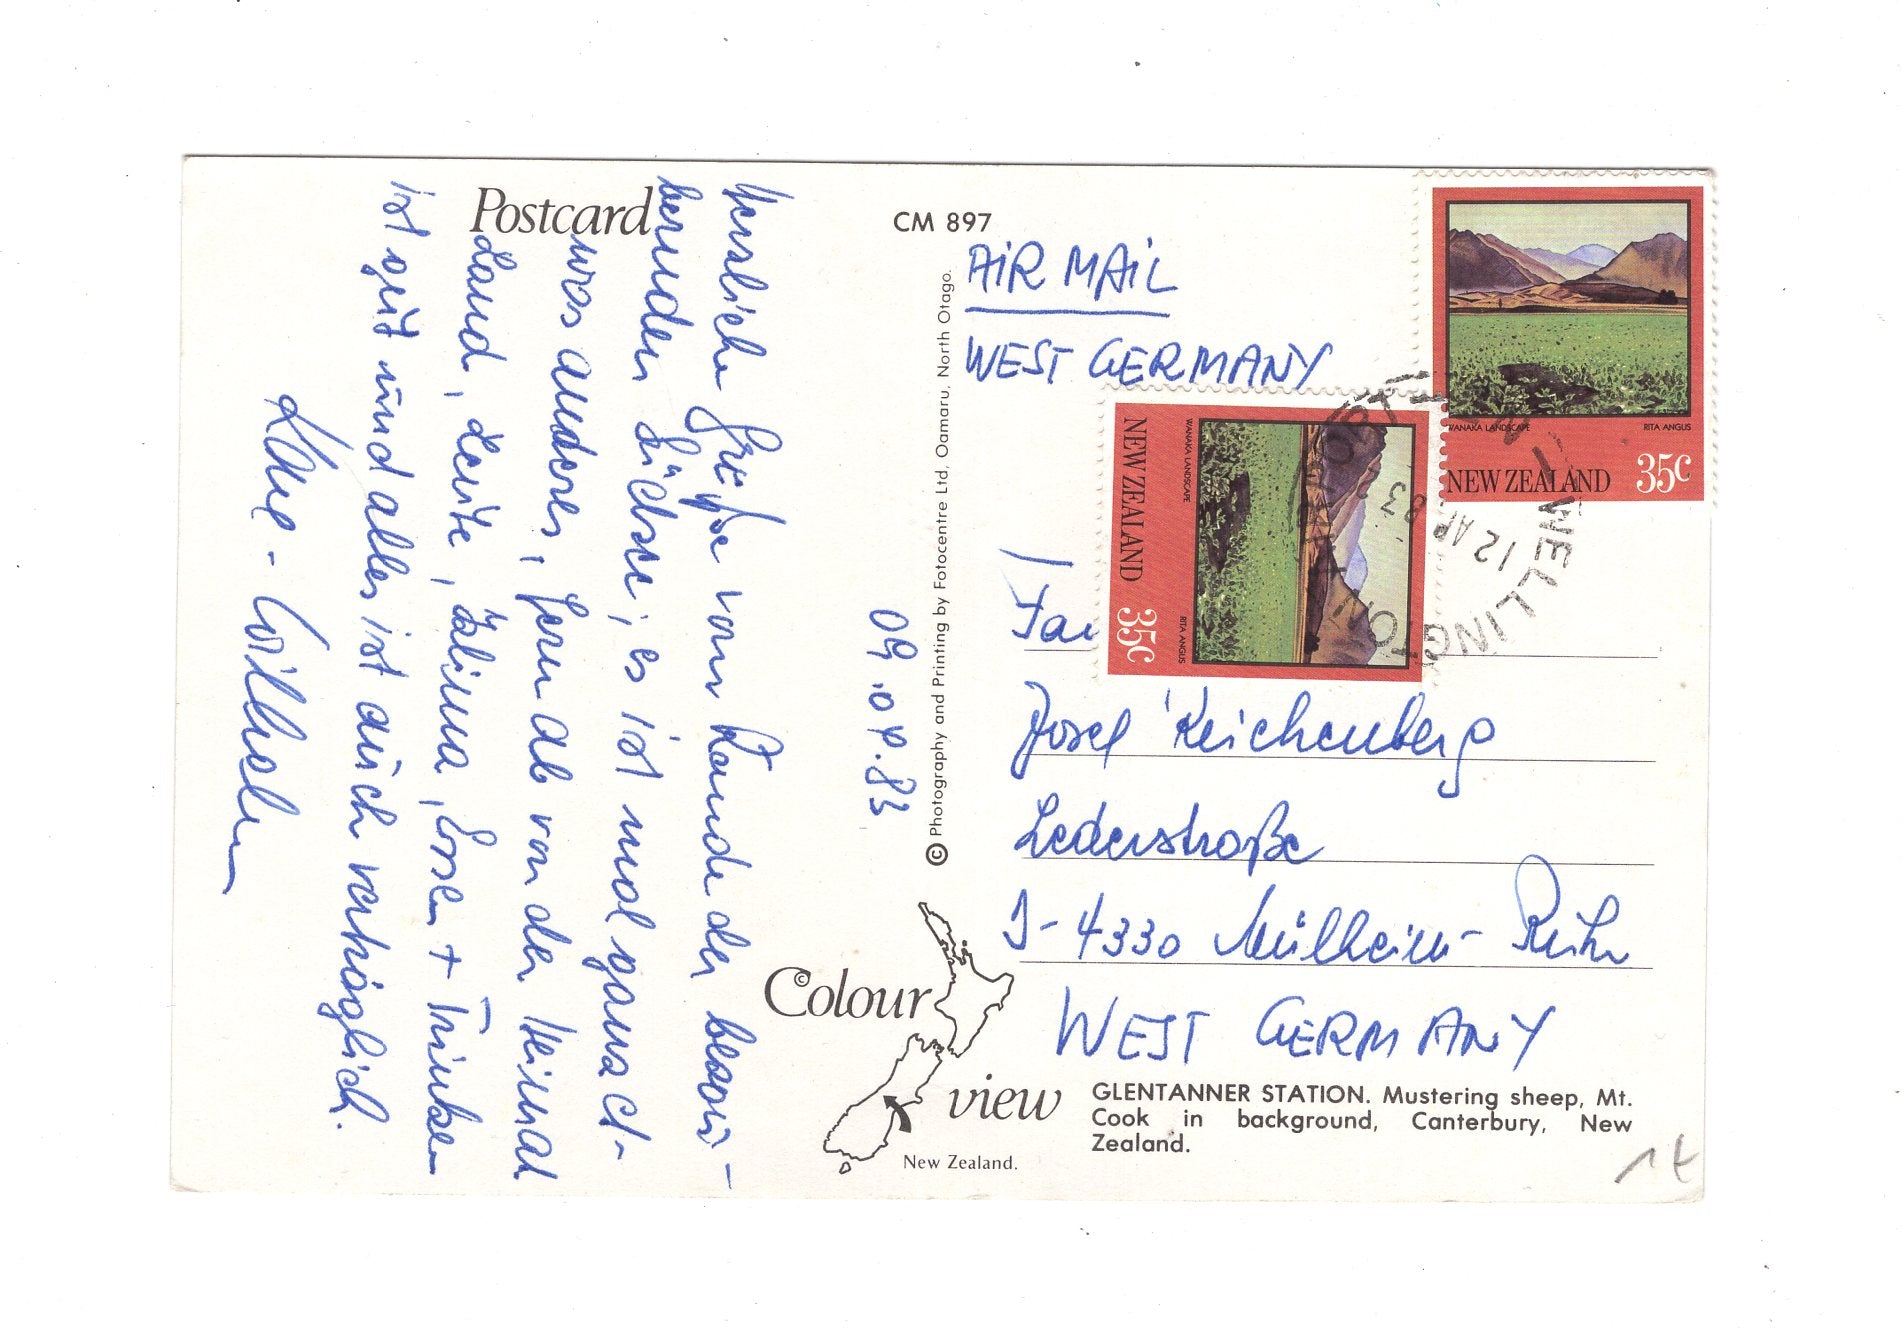 Postcard
CM 897
AIR MAIL
WEST GERMANY
09.04.83
Herzliche Grüße vom Rande der bewoh-
benden Südsee; es ist mal ganz et-
was anderes, fern ab von der Heimat
Land, Leute, Klima, Essen + Trinken
ist gut und alles ist auch verträglich.
Wilhelm
© Photography and Printing by Fotocentre Ltd, Oamaru, North Otago.
WANAKA LANDSCAPE
RITA ANGUS
NEW ZEALAND 35c
WANAKA LANDSCAPE
RITA ANGUS
NEW ZEALAND 35c
WELLINGTON
12 AP 83
Josef Reichenberg
Lederstraße
D-4330 Mülheim-Ruhr
WEST GERMANY
©
Colour
view
New Zealand.
GLENTANNER STATION. Mustering sheep, Mt.
Cook in background, Canterbury, New
Zealand.